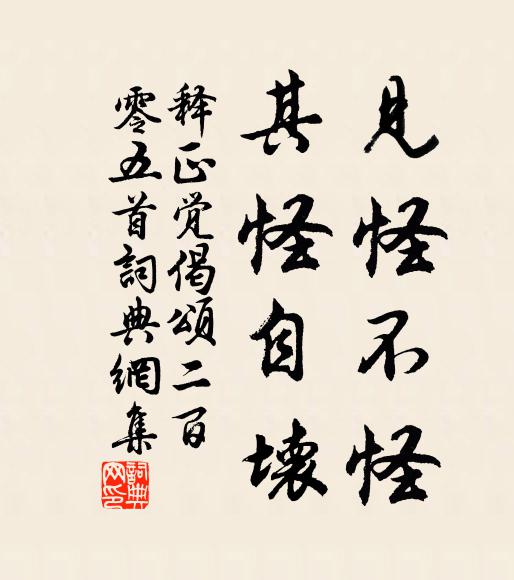 見怪不怪
其怪自壞
释正觉偈頌二百
零五首詞典網集
詞典
网印